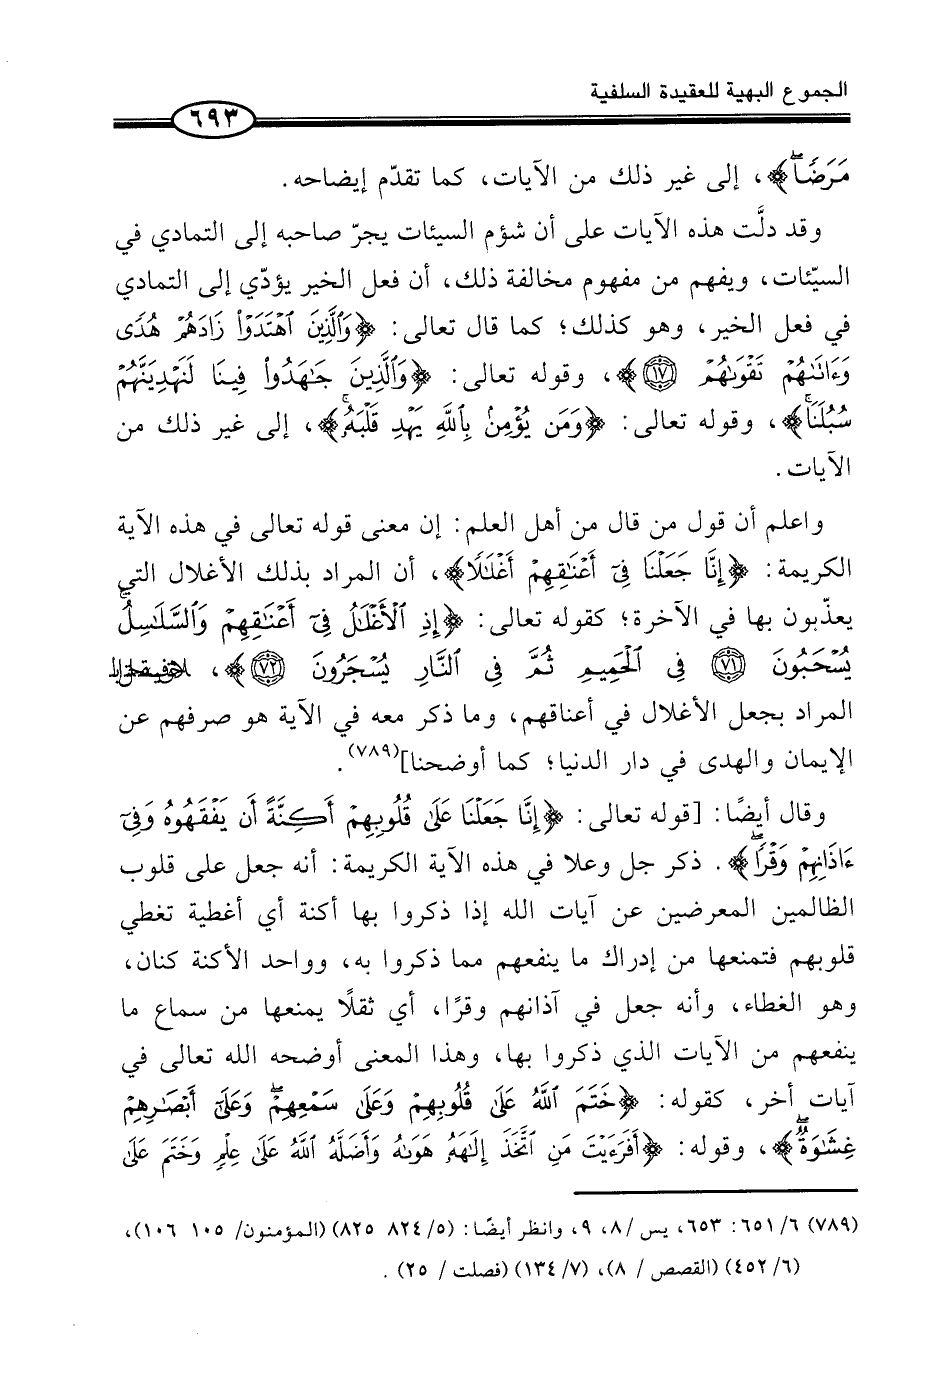 الجموع البهية للعقيدة السلفية
٦٩٣
مَرَضًا﴾، إلى غير ذلك من الآيات، كما تقدّم إيضاحه.
وقد دلَّت هذه الآيات على أن شؤم السيئات يجرّ صاحبه إلى التمادي في
السيّئات، ويفهم من مفهوم مخالفة ذلك، أن فعل الخير يؤدّي إلى التمادي
في فعل الخير، وهو كذلك؛ كما قال تعالى: ﴿وَٱلَّذِينَ ٱهۡتَدَوۡاْ زَادَهُمۡ هُدٗى
وَءَاتَىٰهُمۡ تَقۡوَىٰهُمۡ ١٧﴾، وقوله تعالى: ﴿وَٱلَّذِينَ جَٰهَدُواْ فِينَا لَنَهۡدِيَنَّهُمۡ
سُبُلَنَاۚ﴾، وقوله تعالى: ﴿وَمَن يُؤۡمِنۢ بِٱللَّهِ يَهۡدِ قَلۡبَهُۥۚ﴾، إلى غير ذلك من
الآيات.
واعلم أن قول من قال من أهل العلم: إن معنى قوله تعالى في هذه الآية
الكريمة: ﴿إِنَّا جَعَلۡنَا فِيٓ أَعۡنَٰقِهِمۡ أَغۡلَٰلٗا﴾، أن المراد بذلك الأغلال التي
يعذّبون بها في الآخرة؛ كقوله تعالى: ﴿إِذِ ٱلۡأَغۡلَٰلُ فِيٓ أَعۡنَٰقِهِمۡ وَٱلسَّلَٰسِلُ
يُسۡحَبُونَ ٧١ فِي ٱلۡحَمِيمِ ثُمَّ فِي ٱلنَّارِ يُسۡجَرُونَ ٧٢﴾،
المراد بجعل الأغلال في أعناقهم، وما ذكر معه في الآية هو صرفهم عن
الإيمان والهدى في دار الدنيا؛ كما أوضحنا](٧٨٩).
وقال أيضًا: [قوله تعالى: ﴿إِنَّا جَعَلۡنَا عَلَىٰ قُلُوبِهِمۡ أَكِنَّةً أَن يَفۡقَهُوهُ وَفِيٓ
ءَاذَانِهِمۡ وَقۡرٗاۖ﴾. ذكر جل وعلا في هذه الآية الكريمة: أنه جعل على قلوب
الظالمين المعرضين عن آيات الله إذا ذكروا بها أكنة أي أغطية تغطي
قلوبهم فتمنعها من إدراك ما ينفعهم مما ذكروا به، وواحد الأكنة كنان،
وهو الغطاء، وأنه جعل في آذانهم وقرًا، أي ثقلًا يمنعها من سماع ما
ينفعهم من الآيات الذي ذكروا بها، وهذا المعنى أوضحه الله تعالى في
آيات أخر، كقوله: ﴿خَتَمَ ٱللَّهُ عَلَىٰ قُلُوبِهِمۡ وَعَلَىٰ سَمۡعِهِمۡۖ وَعَلَىٰٓ أَبۡصَٰرِهِمۡ
غِشَٰوَةٞۖ﴾، وقوله: ﴿أَفَرَءَيۡتَ مَنِ ٱتَّخَذَ إِلَٰهَهُۥ هَوَىٰهُ وَأَضَلَّهُ ٱللَّهُ عَلَىٰ عِلۡمٖ وَخَتَمَ عَلَىٰ
(٧٨٩) ٦/ ٦٥١: ٦٥٣، يس/ ٨، ٩، وانظر أيضًا: (٥/ ٨٢٤ ٨٢٥) (المؤمنون/ ١٠٥ ١٠٦)،
(٦/ ٤٥٢) (القصص / ٨)، (٧/ ١٣٤) (فصلت / ٢٥).